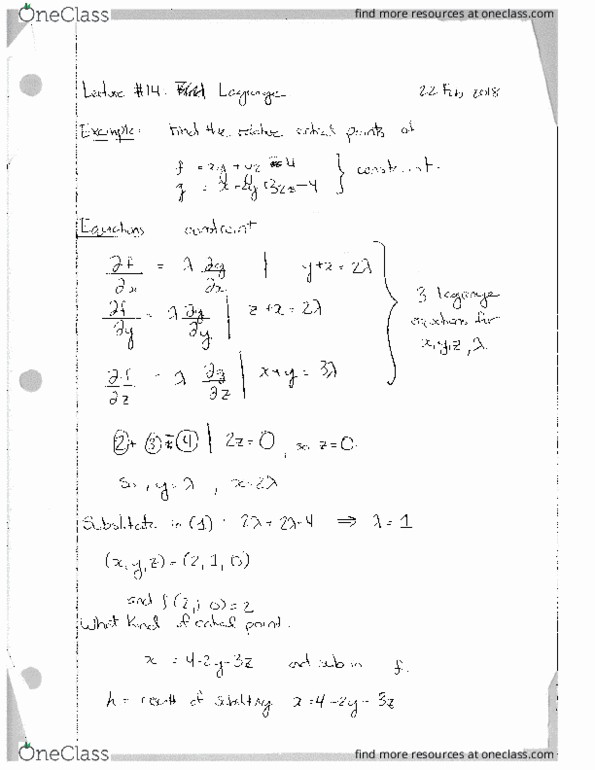 OneClass
find more resources at oneclass.com
Lecture #14: Lagrange
22 Feb 2018
Example: Find the relative critical points of
f = xy + 4
g = x + 2y + 3z - 4 } constraint.
Equations constraint
∂f/∂x = λ ∂g/∂x | y+z = 2λ
∂f/∂y = λ ∂g/∂y | z+x = 2λ
∂f/∂z = λ ∂g/∂z | x+y = 3λ
3 lagrange
equations for
x, y, z, λ
②+ ③ = ④ | 2z = 0, so z = 0.
So, y = λ, x = 2λ
Substitute in (1) 2λ + 2λ = 4 ⇒ λ = 1
(x, y, z) = (2, 1, 0)
and f(2,1,0) = 2
What kind of critical point.
x = 4-2y-3z and sub in f.
h = result of x = 4-2y-3z
OneClass
find more resources at oneclass.com